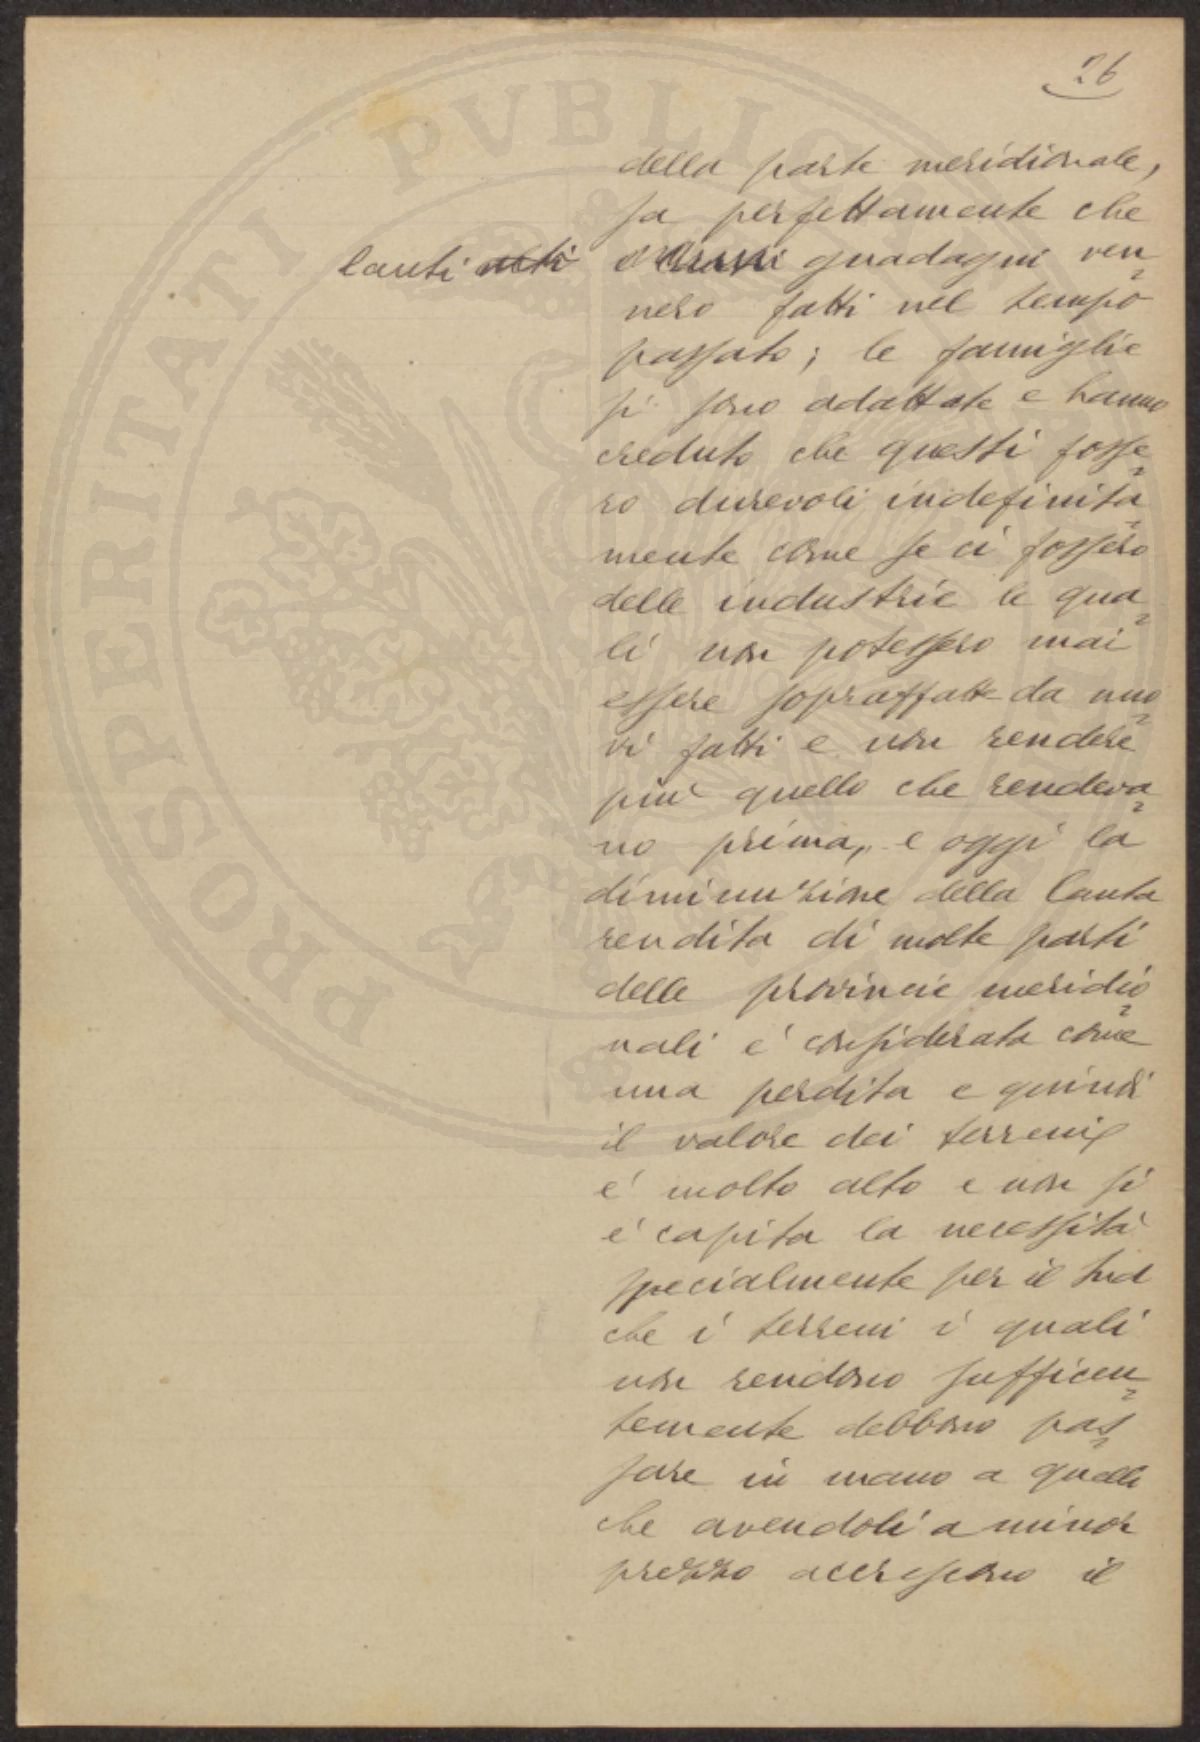 26
della parte meridionale,
sa perfettamente che
lauti guadagni ven=
nero fatti nel tempo
passato; le famiglie
si sono adattate e hanno
creduto che questi fosse=
ro durevoli indefinita=
mente come se ci fossero
delle industrie le qua=
li non potessero mai
essere sopraffatte da nuo=
vi fatti e non rendere
più quello che rendeva=
no prima, e oggi la
diminuzione della lauta
rendita di molte parti
delle provincie meridio=
nali é considerata come
una perdita e quindi
il valore dei terreni
é molto alto e non si
é capita la necessità
specialmente per il Sud
che i terreni i quali
non rendono sufficen=
temente debbono pas=
sare in mano a quelli
che avendoli a minor
prezzo accrescono il
PROSPERITATI PVBLICAE